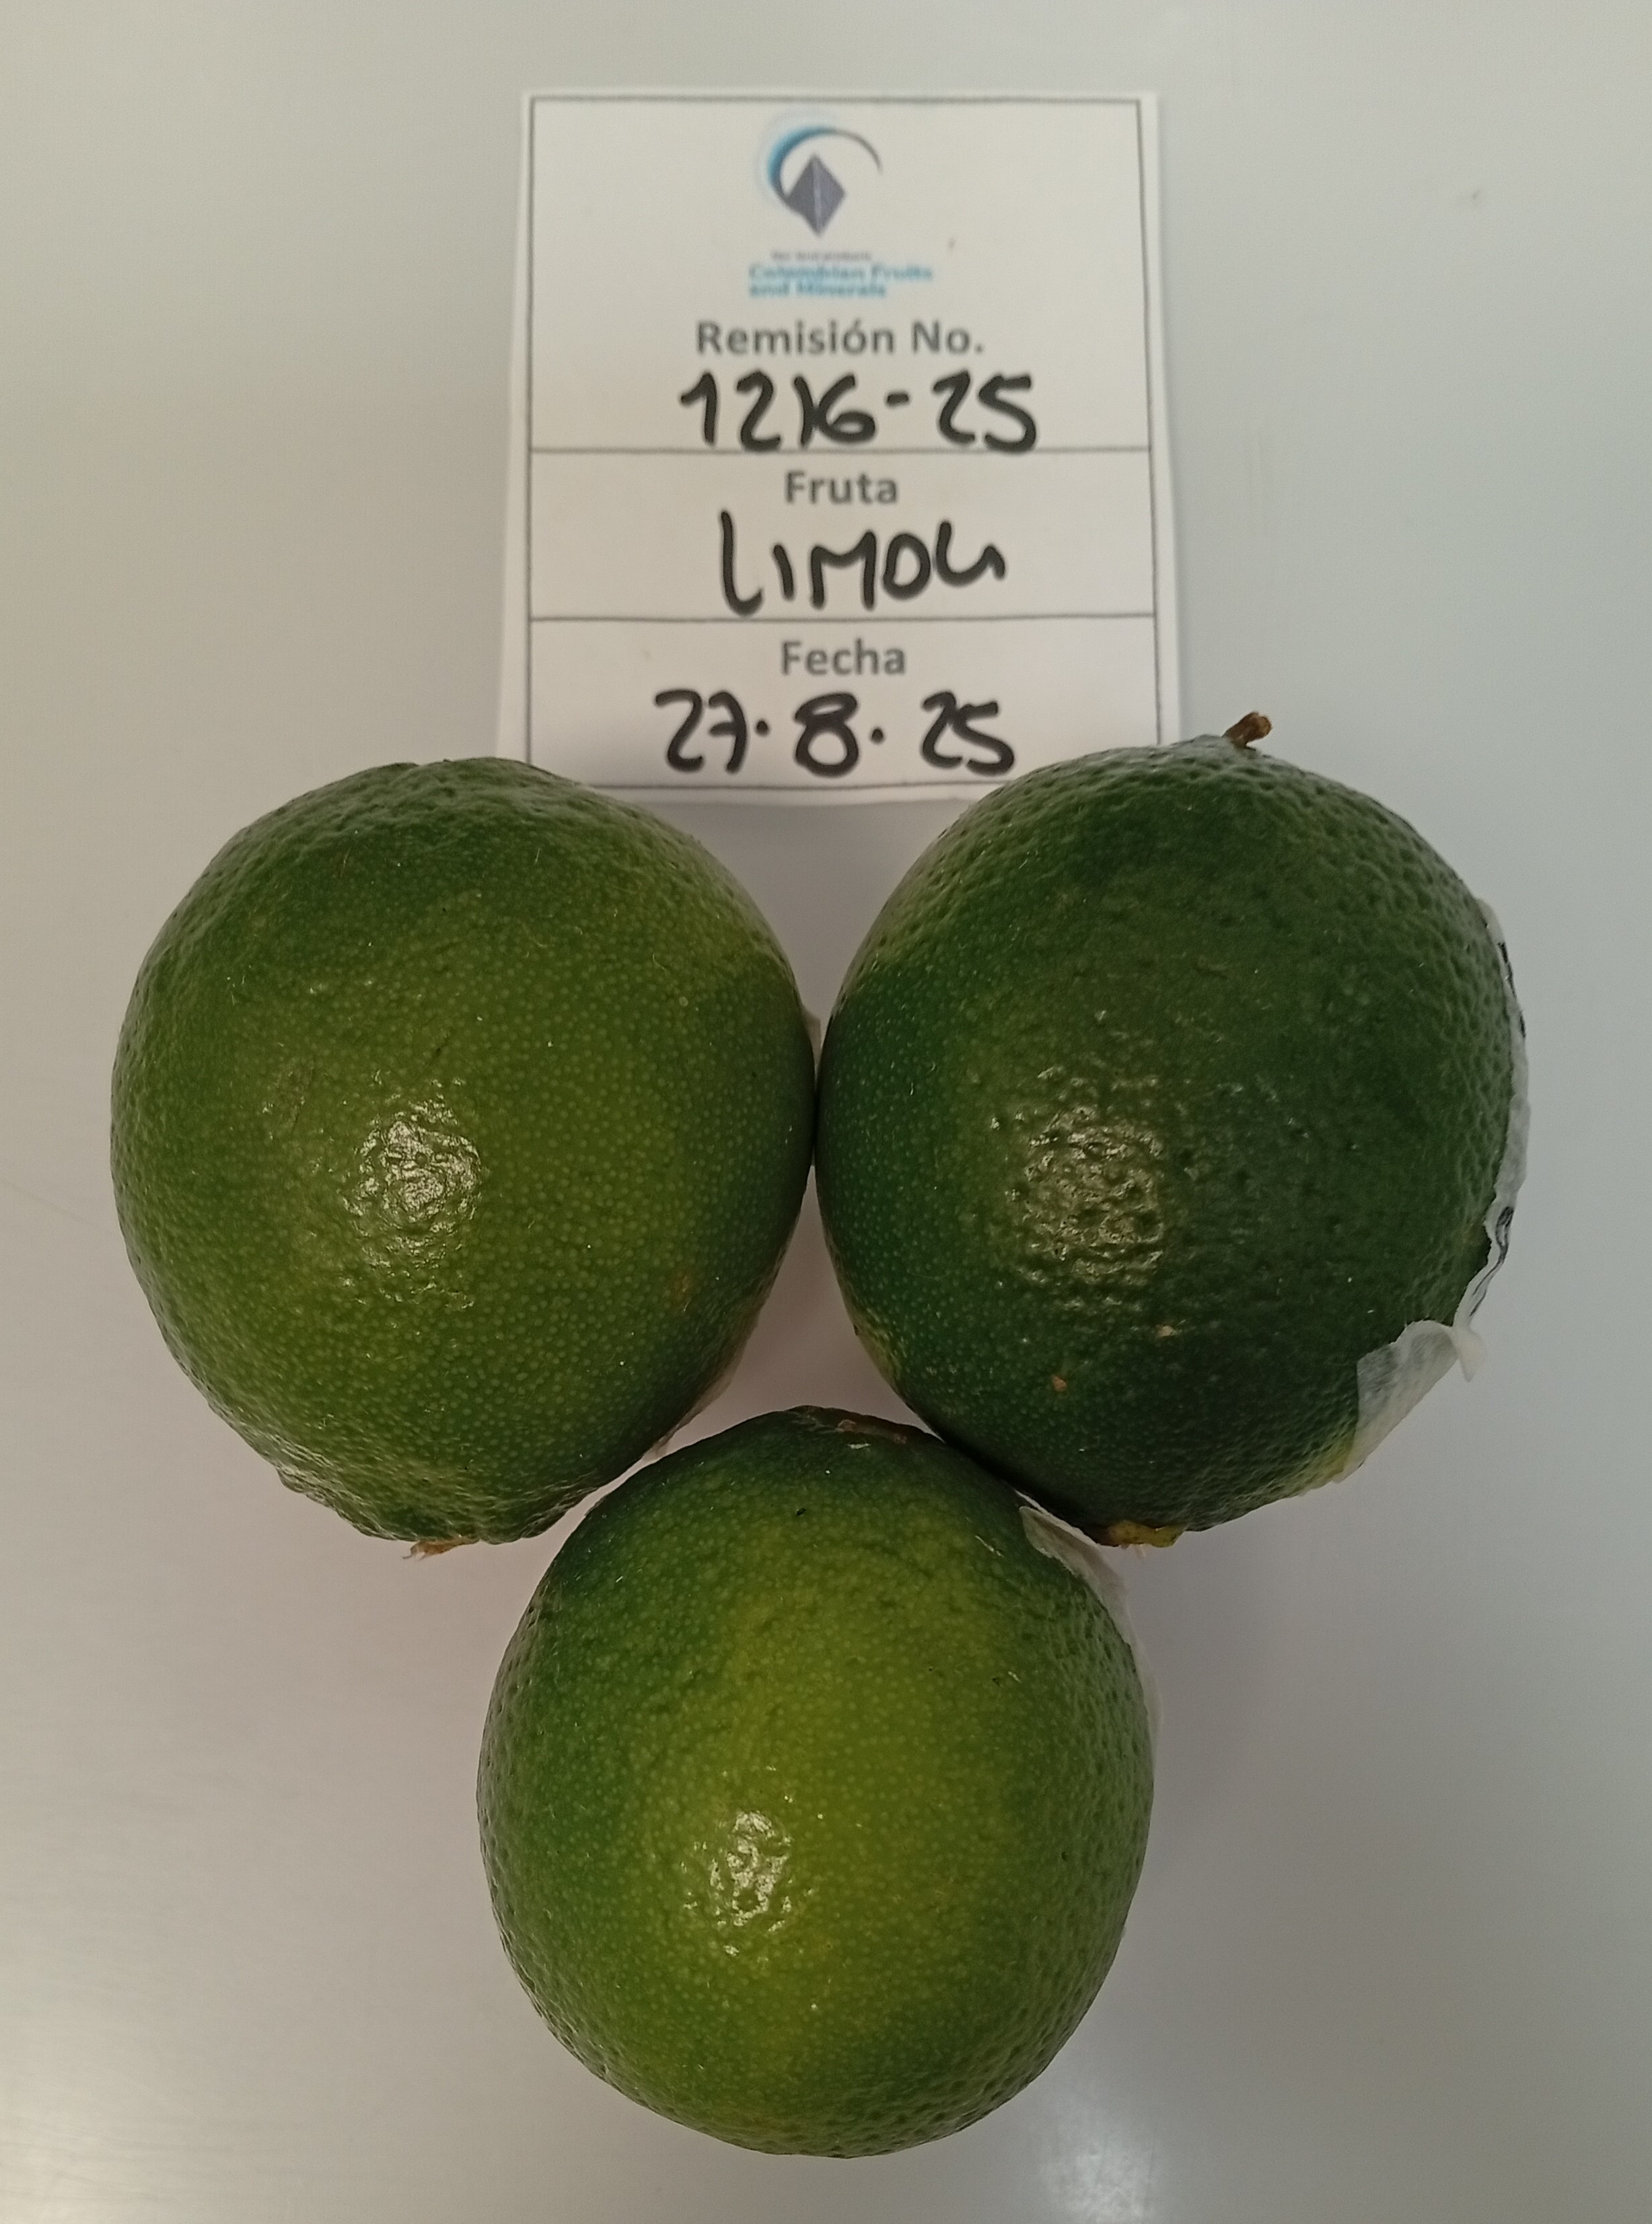 Colombian Fruits
and Minerals
Remisión No.
1216-25
Fruta
LIMON
Fecha
27.8.25